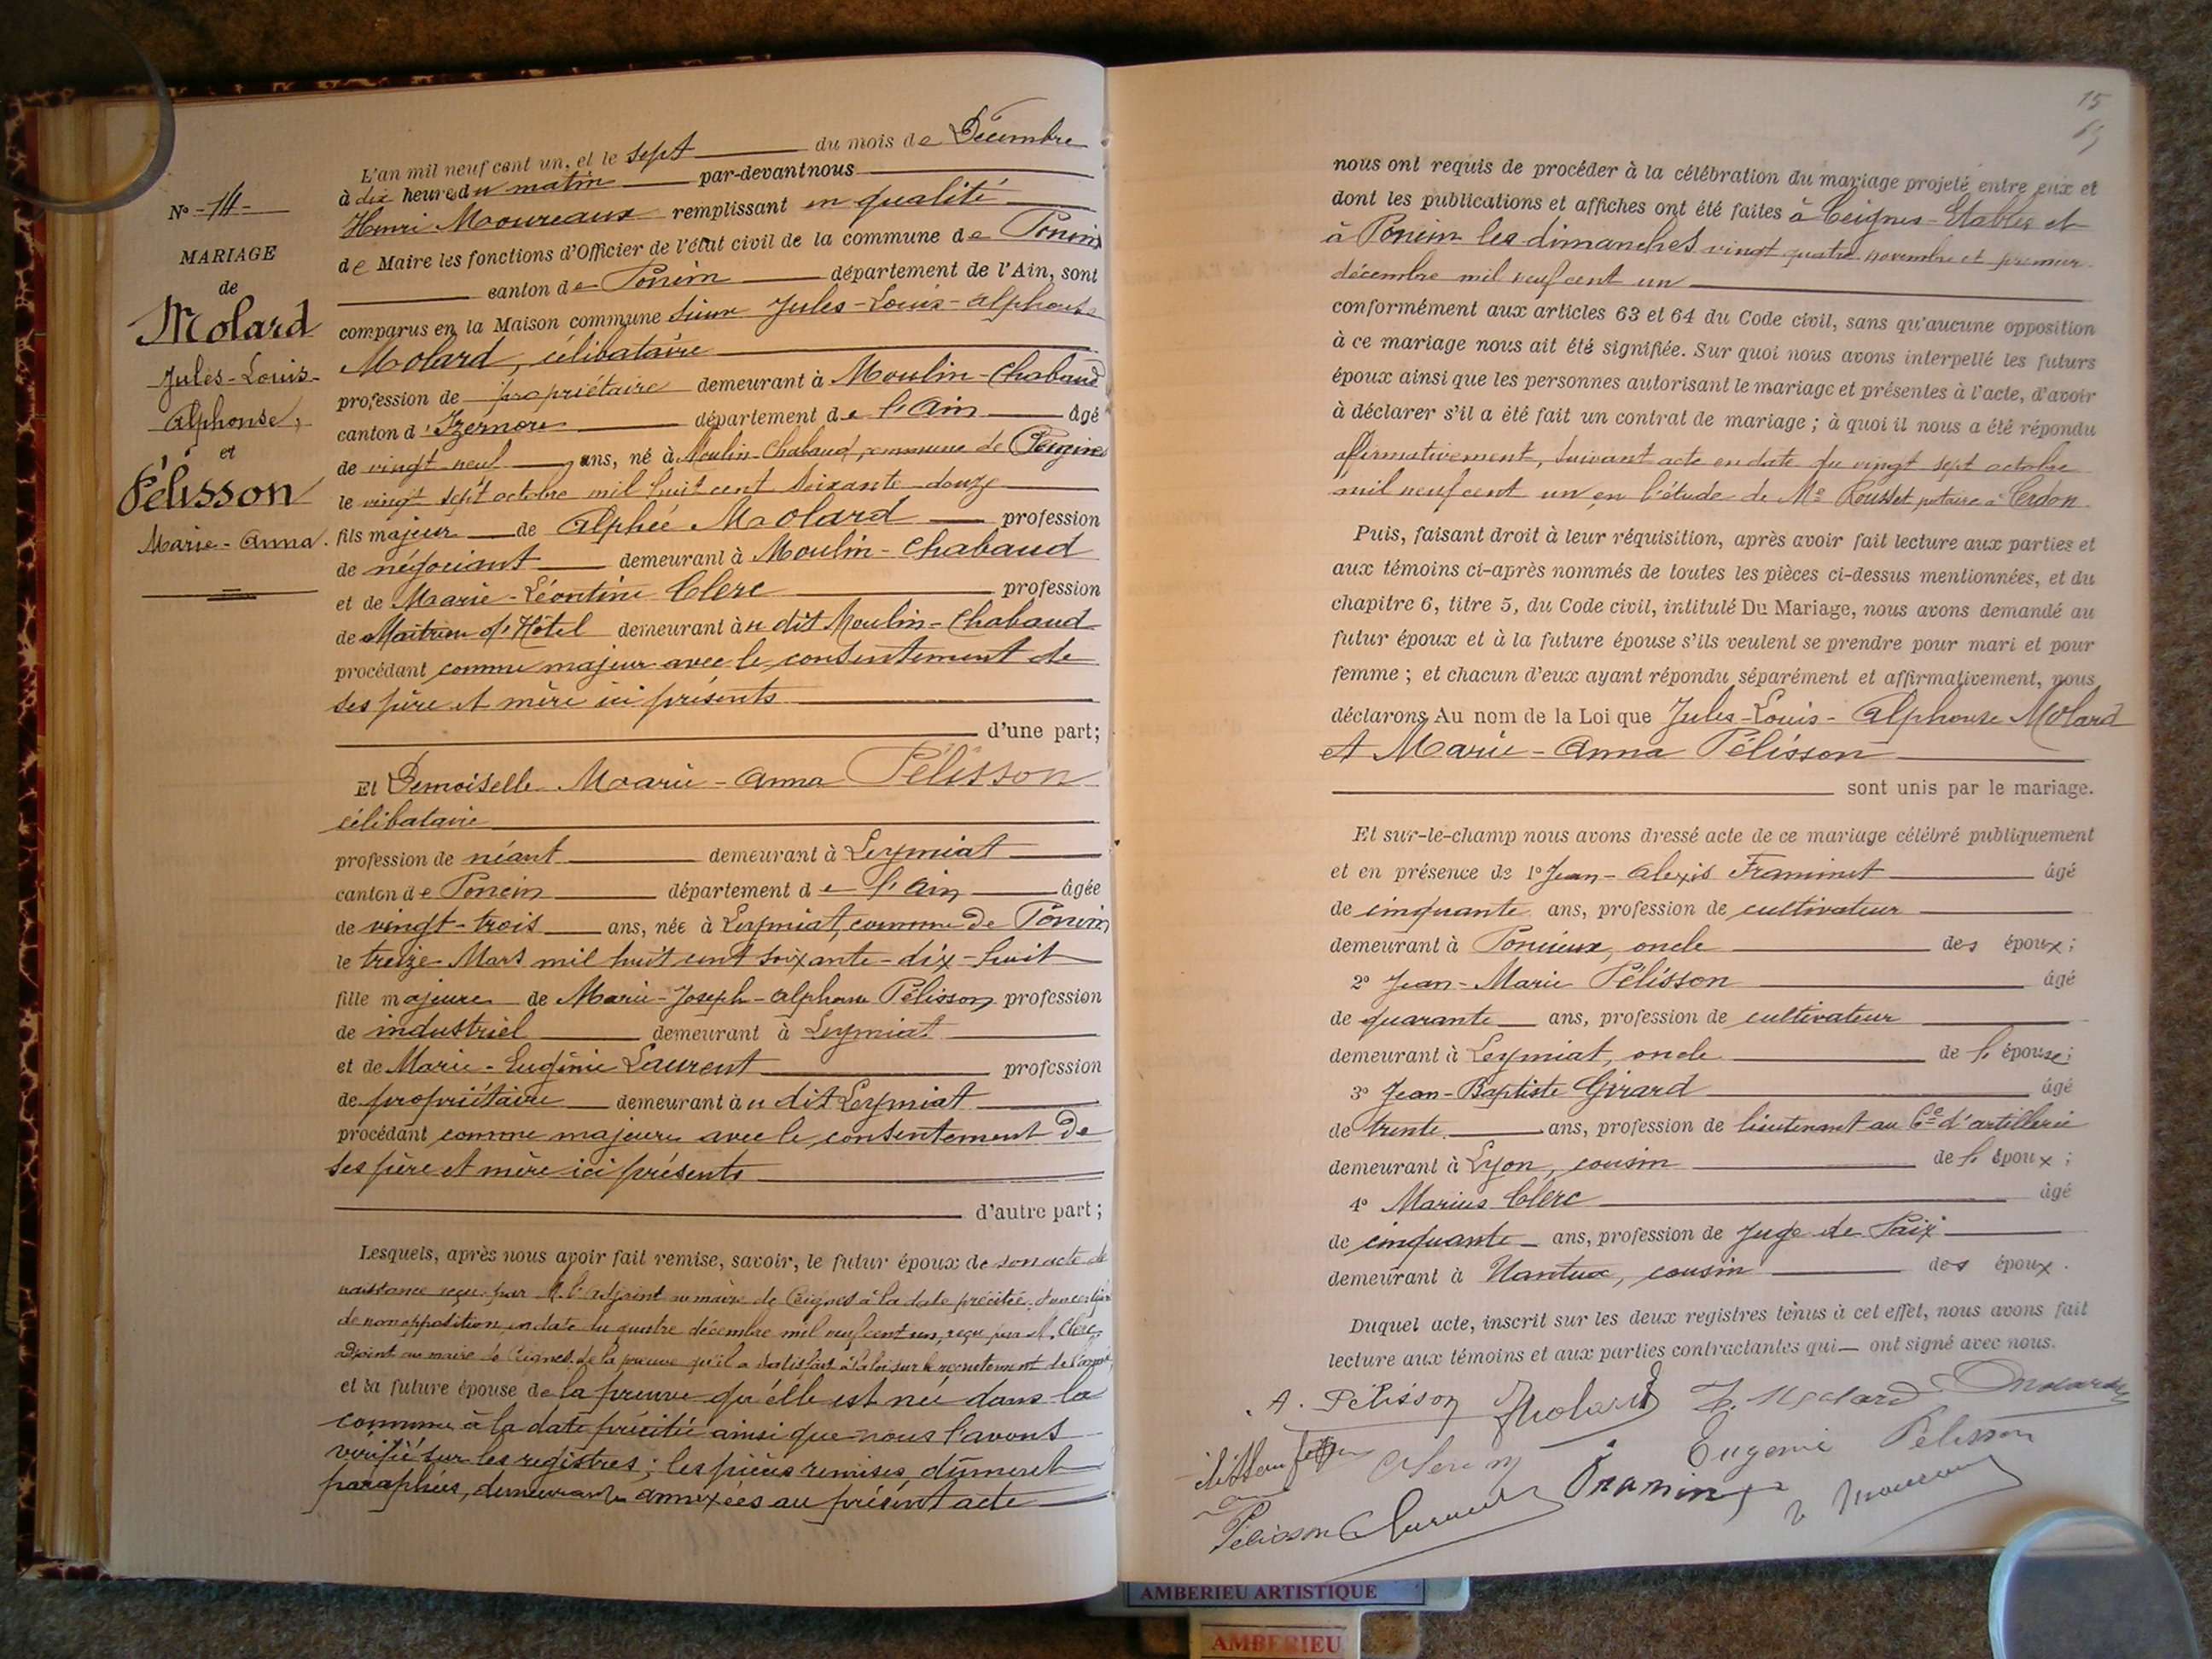 N° -14-
MARIAGE
de
Molard
Jules-Louis-
Alphonse,
et
Pélisson
Marie-Anna.
L'an mil neuf cent un, et le sept du mois de Décembre
à dix heures du matin par-devant nous
Henri Moureaux remplissant en qualité
de Maire les fonctions d'Officier de l'état civil de la commune de Poncin
canton de Poncin département de l'Ain, sont
comparus en la Maison commune sieur Jules-Louis-Alphonse
Molard, célibataire
profession de propriétaire demeurant à Moulin-Chabaud
canton d'Izernore département de l'Ain âgé
de vingt neuf ans, né à Moulin-Chabaud, commune de Ceignes
le vingt sept octobre mil huit cent soixante douze
fils majeur de Alphée Molard profession
de négociant demeurant à Moulin-Chabaud
et de Marie-Léontine Clerc profession
de Maîtresse d'Hôtel demeurant au dit Moulin-Chabaud
procédant comme majeur avec le consentement de
ses père et mère ici présents
d'une part;
Et Demoiselle Marie-Anna Pélisson
célibataire
profession de néant demeurant à Leymiat
canton de Poncin département de l'Ain âgée
de vingt-trois ans, née à Leymiat, commune de Poncin
le treize Mars mil huit cent soixante-dix-huit
fille majeure de Marie-Joseph-Alphonse Pélisson profession
de industriel demeurant à Leymiat
et de Marie-Eugénie Laurent profession
de propriétaire demeurant au dit Leymiat
procédant comme majeure avec le consentement de
ses père et mère ici présents
d'autre part;
Lesquels, après nous avoir fait remise, savoir, le futur époux de son acte de
naissance reçu par M. l'adjoint au maire de Ceignes à la date précitée, d'un certificat
de non opposition en date du quatre décembre mil neuf cent un, reçu par M. Clerc,
adjoint au maire de Ceignes, de la preuve qu'il a satisfait à la loi sur le recrutement de l'armée,
et la future épouse de la preuve qu'elle est née dans la
commune à la date précitée ainsi que nous l'avons
vérifié sur les registres; les pièces remises, dûment
paraphées, demeurant annexées au présent acte
15
nous ont requis de procéder à la célébration du mariage projeté entre eux et
dont les publications et affiches ont été faites à Ceignes-Etables et
à Poncin les dimanches vingt quatre novembre et premier
décembre mil neuf cent un
conformément aux articles 63 et 64 du Code civil, sans qu'aucune opposition
à ce mariage nous ait été signifiée. Sur quoi nous avons interpellé les futurs
époux ainsi que les personnes autorisant le mariage et présentes à l'acte, d'avoir
à déclarer s'il a été fait un contrat de mariage; à quoi il nous a été répondu
affirmativement, suivant acte en date du vingt sept octobre
mil neuf cent un en l'étude de Me Rousset notaire à Cerdon.
Puis, faisant droit à leur réquisition, après avoir fait lecture aux parties et
aux témoins ci-après nommés de toutes les pièces ci-dessus mentionnées, et du
chapitre 6, titre 5, du Code civil, intitulé Du Mariage, nous avons demandé au
futur époux et à la future épouse s'ils veulent se prendre pour mari et pour
femme; et chacun d'eux ayant répondu séparément et affirmativement, nous
déclarons Au nom de la Loi que Jules-Louis-Alphonse Molard
et Marie-Anna Pélisson
sont unis par le mariage.
Et sur-le-champ nous avons dressé acte de ce mariage célébré publiquement
et en présence de 1° Jean-Alexis Framinet âgé
de cinquante ans, profession de cultivateur
demeurant à Poncieux, oncle des époux;
2° Jean-Marie Pélisson âgé
de quarante ans, profession de cultivateur
demeurant à Leymiat, oncle de l'épouse;
3° Jean-Baptiste Girard âgé
de trente ans, profession de lieutenant au 6e d'artillerie
demeurant à Lyon, cousin de l'époux;
4° Marius Clerc âgé
de cinquante ans, profession de Juge de Paix
demeurant à Nantua, cousin des époux.
Duquel acte, inscrit sur les deux registres tenus à cet effet, nous avons fait
lecture aux témoins et aux parties contractantes qui ont signé avec nous.
A. Pélisson JMolard Molard
Clerc m Eugenie Pelisson
Pelisson Framinet
AMBERIEU ARTISTIQUE
AMBERIEU